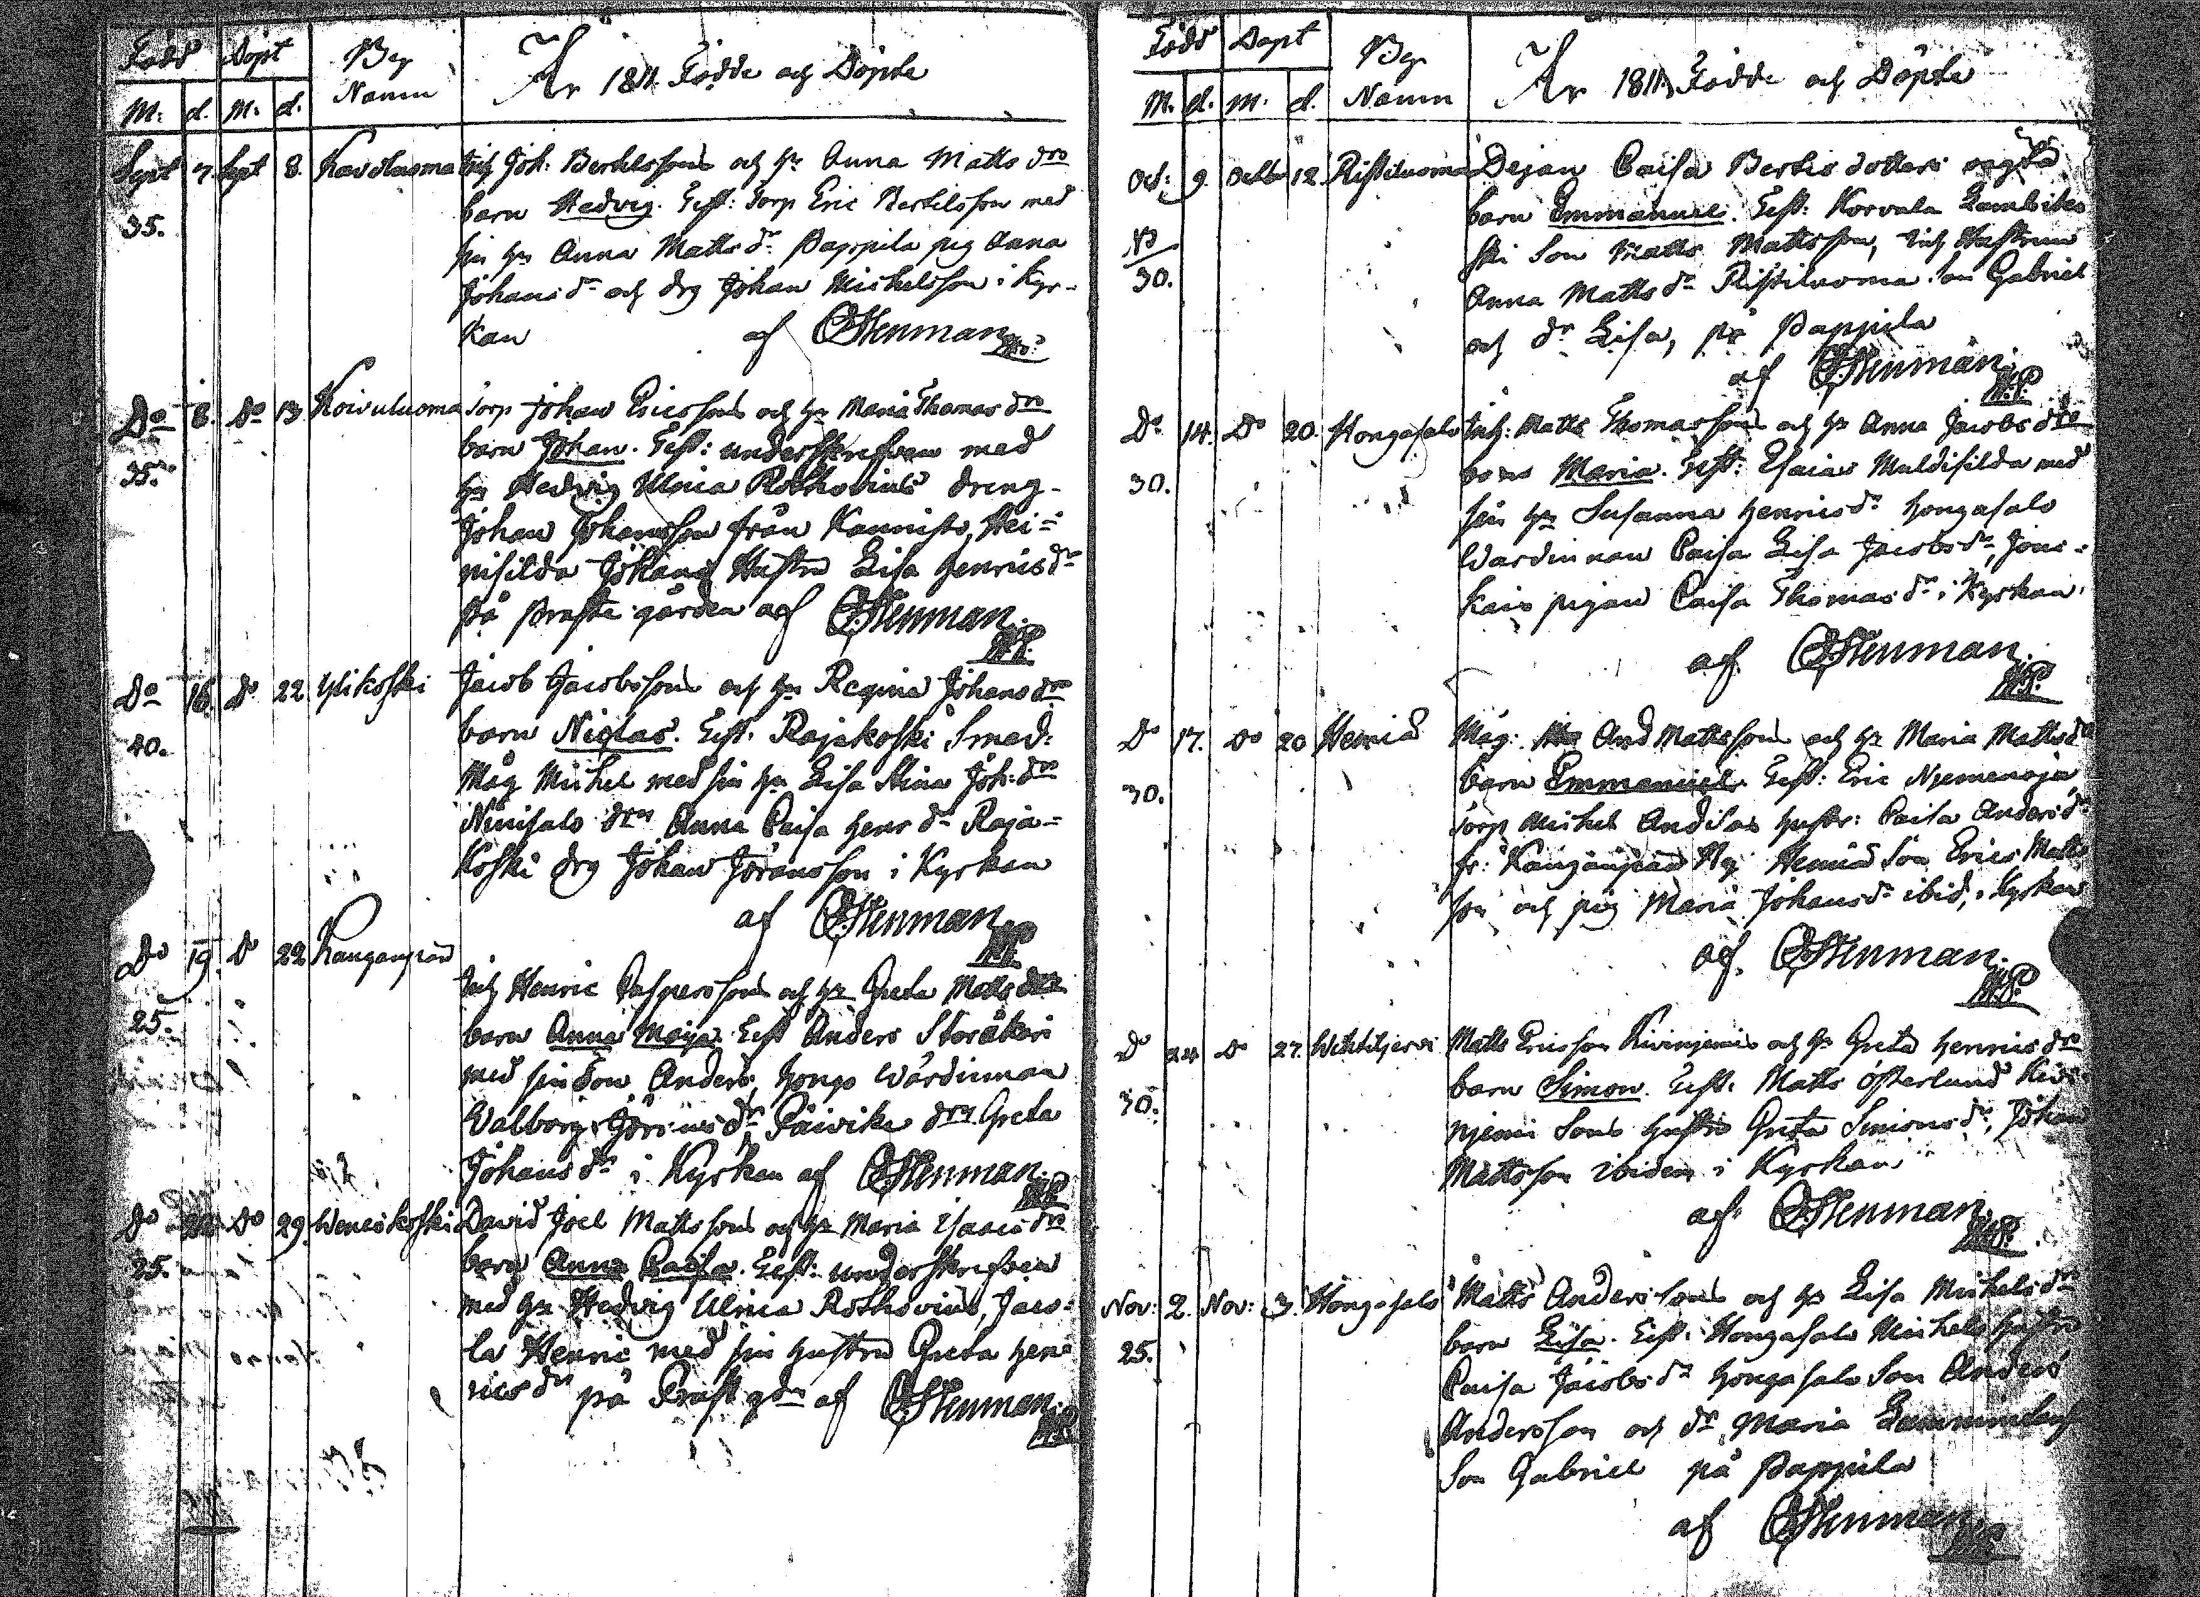 Född Döpt By Namn År 1811 Födde och Döpte
M: d. M: d.
Sept 7. Sept 8. Joh: Bertelssons och hu Anna Matts drs
35. barn Hedvig. Test: Torp Eric Bertilsson med
sin hu Anna Matts dr Pappila pig Anna
Johans dr och drg Johan Michelsson i Kyr-
kan af Stenman
Do 8. Do 13. Koivuluoma Torp Johan Ericssons och hu Maria Thomas drs
35. barn Johan. Test: underskrefven med
hu Hedvig Ulrica Rothovius dreng
Johan Johansson från Kannisto, Hei-
nisilda Johans Hustru Lisa Henricsdr
På Prästegården af Stenman
Do 16. Do 22. Ylikoski Jacob Jacobssons och hu Regina Johans drs
40. barn Niclas. Test: Rajakoski Smed:
Måg Michel med sin hu Lisa Stina Joh: dr
Niinisalo drn Anna Caisa Henr dr Raja-
koski drg Johan Göransson i Kyrkan
af Stenman
Do 19. Do 22 Kangangiärd
Henric Caspersson och hu Greta Matts drs
25. barn Anna Maija Test Anders Storåkers
med sin Son Anders, Hongo Wärdinnan
Walborg dr Päivike drn Greta
Johans dr i Kyrkan af Stenman
Do Do 29. Weneskoski David Joel Matts sons och hu Maria Isaacs drs
25. barn Anna Caisa. Test: underskrefven
med hu Hedvig Ulrica Rothovius, Jaco-
la Henric med sin hustru Greta Hen-
rics dr på Präst gdn af Stenman
Född Döpt By Namn År 1811 Födde och Döpte
M. d. M. d.
Oct: 9. Octbr 12. Ristiluoma Dejan Caisa Bertils dotters oägta
barn Emmanuel. Test: Korvala Lambikos
ski Son Matts Mattsson, Hustrun
30. Anna Matts dr Ristiluoma Son Gabriel
och dr Lisa, på Pappila
af Stenman.
Do 14. Do 20. Hongasalo Matts Thomassons och hu Anna Jacobs drs
30. barn Maria. Test: Esaias Muldisilda med
sin hu Susanna Henricsdr Hongasalo
Wärdinnan Caisa Lisa Jacobsdr, Jons-
kais pigan Caisa Thomas dr i Kyrkan.
af Stenman.
Do 17. Do 20 Måg: And Mattssons och hu Maria Mattsdrs
30. barn Emmanuel. Test: Eric Njemenoja
Torp Michel Andilas hustr: Caisa Andersdr
fr: Son Erics Matts
son och pig Maria Johansdr ibid, i Kyrkan
af. Stenman.
Do 24 Do 27. Matts Ericsson Kivinjemis och hu Greta Henrics drs
30. barn Simon. Test: Matts Österlund Kivi-
njemi Sons hustru Greta Simonsdr, Johan
Mattsson ibidem i Kyrkan
af. Stenman.
Nov: 2. Nov: 3. Hongasalo Matts Anderssons och hu Lisa Michels drs
25. barn Lisa. Test: Hongasalo Michels hustru
Caisa Jacobs dr Hongasalo Son Anders
Andersson och dr Maria
Son Gabriel på Pappila
af Stenman